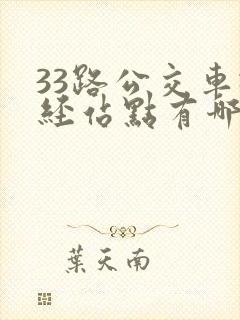 33路公交車
經佔點有哪
葉天南